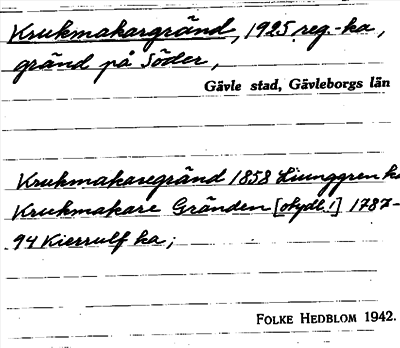 Krukmakargränd, 1925 reg.-ka,
gränd på Söder,
Gävle stad, Gävleborgs län
Krukmakaregränd 1858 Ljunggren ka
Krukmakare Gränden [otydl.!] 1787-
94 Kierrulf ka;
FOLKE HEDBLOM 1942.